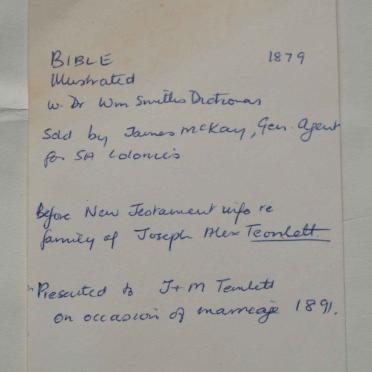 BIBLE 1879
Illustrated
w. Dr Wm Smiths Dictionary
Sold by James McKay, Gen. Agent
for SA Colonies
Before New Testament info re
family of Joseph Alex Temlett
Presented to J+M Temlett
on occasion of marriage 1891.